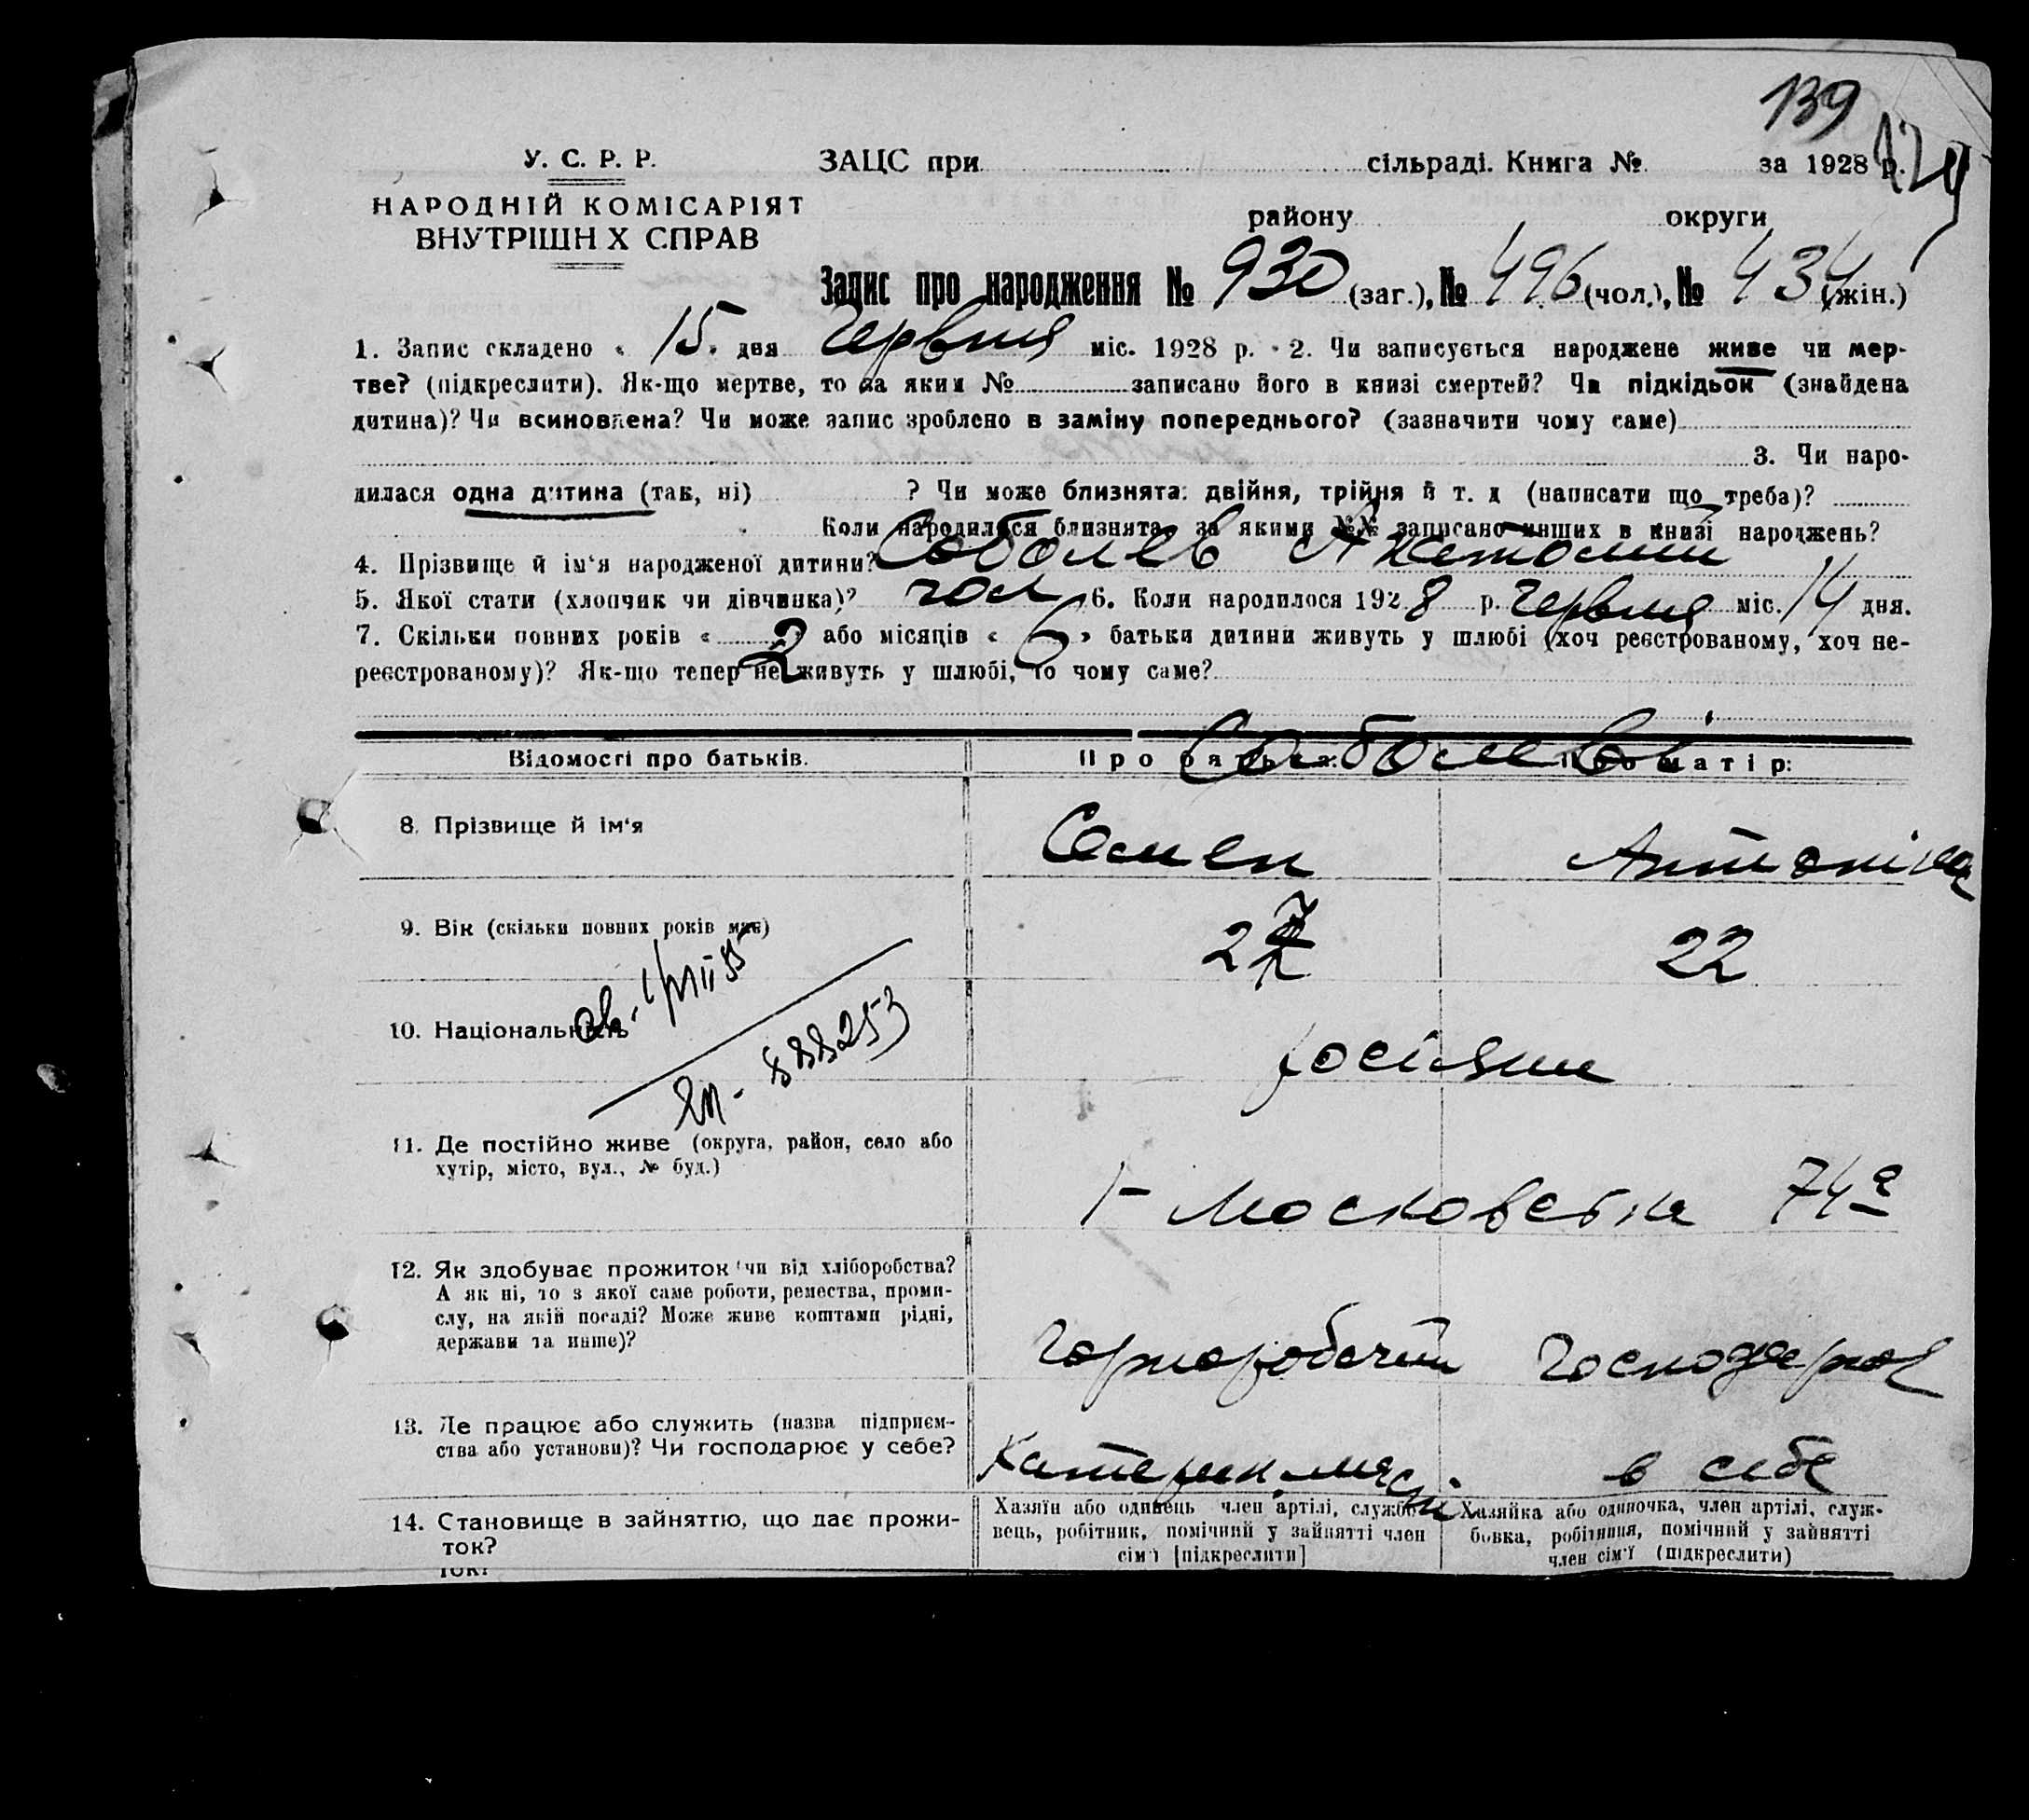 139
129
У. С. Р. Р.
ЗАЦС при сільраді. Книга № за 1928 р.
НАРОДНІЙ КОМІСАРІЯТ
ВНУТРІШН Х СПРАВ
району округи
Запис про народження № 930 (заг.), № 496 (чол.), № 434 (жін.)
1. Запис складено « 15 » дня Червня міс. 1928 р. 2. Чи записується народжене живе чи мер-
тве? (підкреслити). Як-що мертве, то за яким № записано його в книзі смертей? Чи підкідьок (знайдена
дитина)? Чи всиновлена? Чи може запис зроблено в заміну попереднього? (зазначити чому саме)
3. Чи наро-
дилася одна дитина (так, ні) ? Чи може близнята: двійня, трійня й т. д (написати що треба)?
Коли народилося близнята, за якими №№ записано инших в книзі народжень?
4. Прізвище й ім‘я народженої дитини? Соболев Анатолий
5. Якої стати (хлопчик чи дівчинка)? чол 6. Коли народилося 1928 р. Червня міс. 14 дня.
7. Скільки повних років « 2 » або місяців « 6 » батьки дитини живуть у шлюбі (хоч реєстрованому, хоч не-
реєстрованому)? Як-що тепер не живуть у шлюбі, то чому саме?
Відомості про батьків. Про батька: Про матір:
Соболеві
8. Прізвище й ім‘я Семен Антоніна
9. Вік (скільки повних років має) 27 22
10. Національність росіяни
888253
11. Де постійно живе (округа, район, село або
хутір, місто, вул., № буд.)
1- Московська 74а
12. Як здобуває прожиток чи від хліборобства?
А як ні, то з якої саме роботи, ремества, проми-
слу, на якій посаді? Може живе коштами рідні,
держави та инше)?
Чорноробочий Господарюэ
13. Де працює або служить (назва підприєм-
ства або установи)? Чи господарює у себе?
в себе
14. Становище в зайняттю, що дає прожи-
ток?
Хазяїн або одинець член артілі, службо-
вець, робітник, помічний у зайнятті член
сім'ї [підкреслити]
Хазяйка або одиночка, член артілі, служ-
бовка, робітниця, помічний у зайнятті
член сім'ї (підкреслити)
ток?